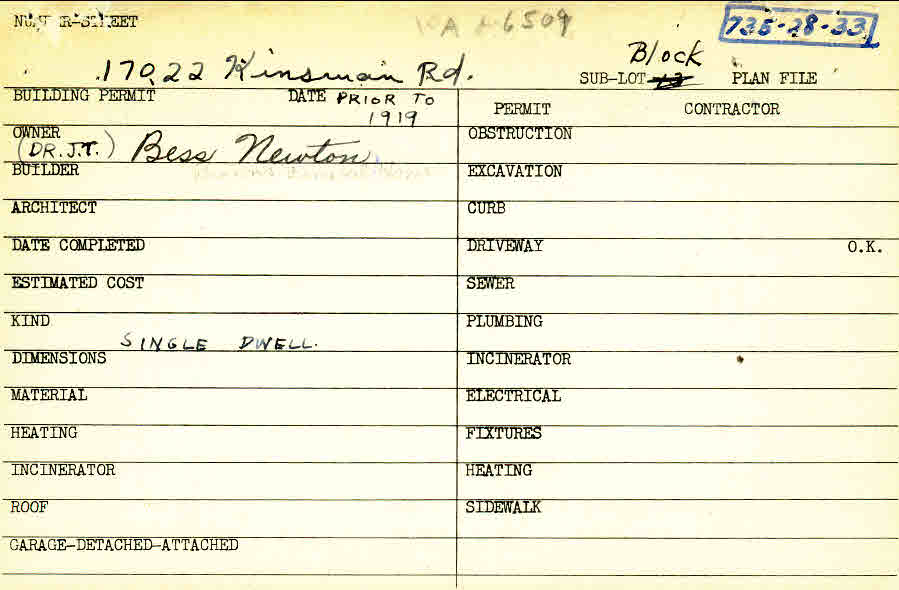 NUMBER-STREET A 6509 735-28-33
17022 Kinsman Rd. Block
SUB-LOT 13 PLAN FILE
BUILDING PERMIT DATE PRIOR TO 1919 PERMIT CONTRACTOR
OWNER (DR. J.T.) Bess Newton OBSTRUCTION
BUILDER EXCAVATION
ARCHITECT CURB
DATE COMPLETED DRIVEWAY O.K.
ESTIMATED COST SEWER
KIND SINGLE DWELL. PLUMBING
DIMENSIONS INCINERATOR
MATERIAL ELECTRICAL
HEATING FIXTURES
INCINERATOR HEATING
ROOF SIDEWALK
GARAGE-DETACHED-ATTACHED